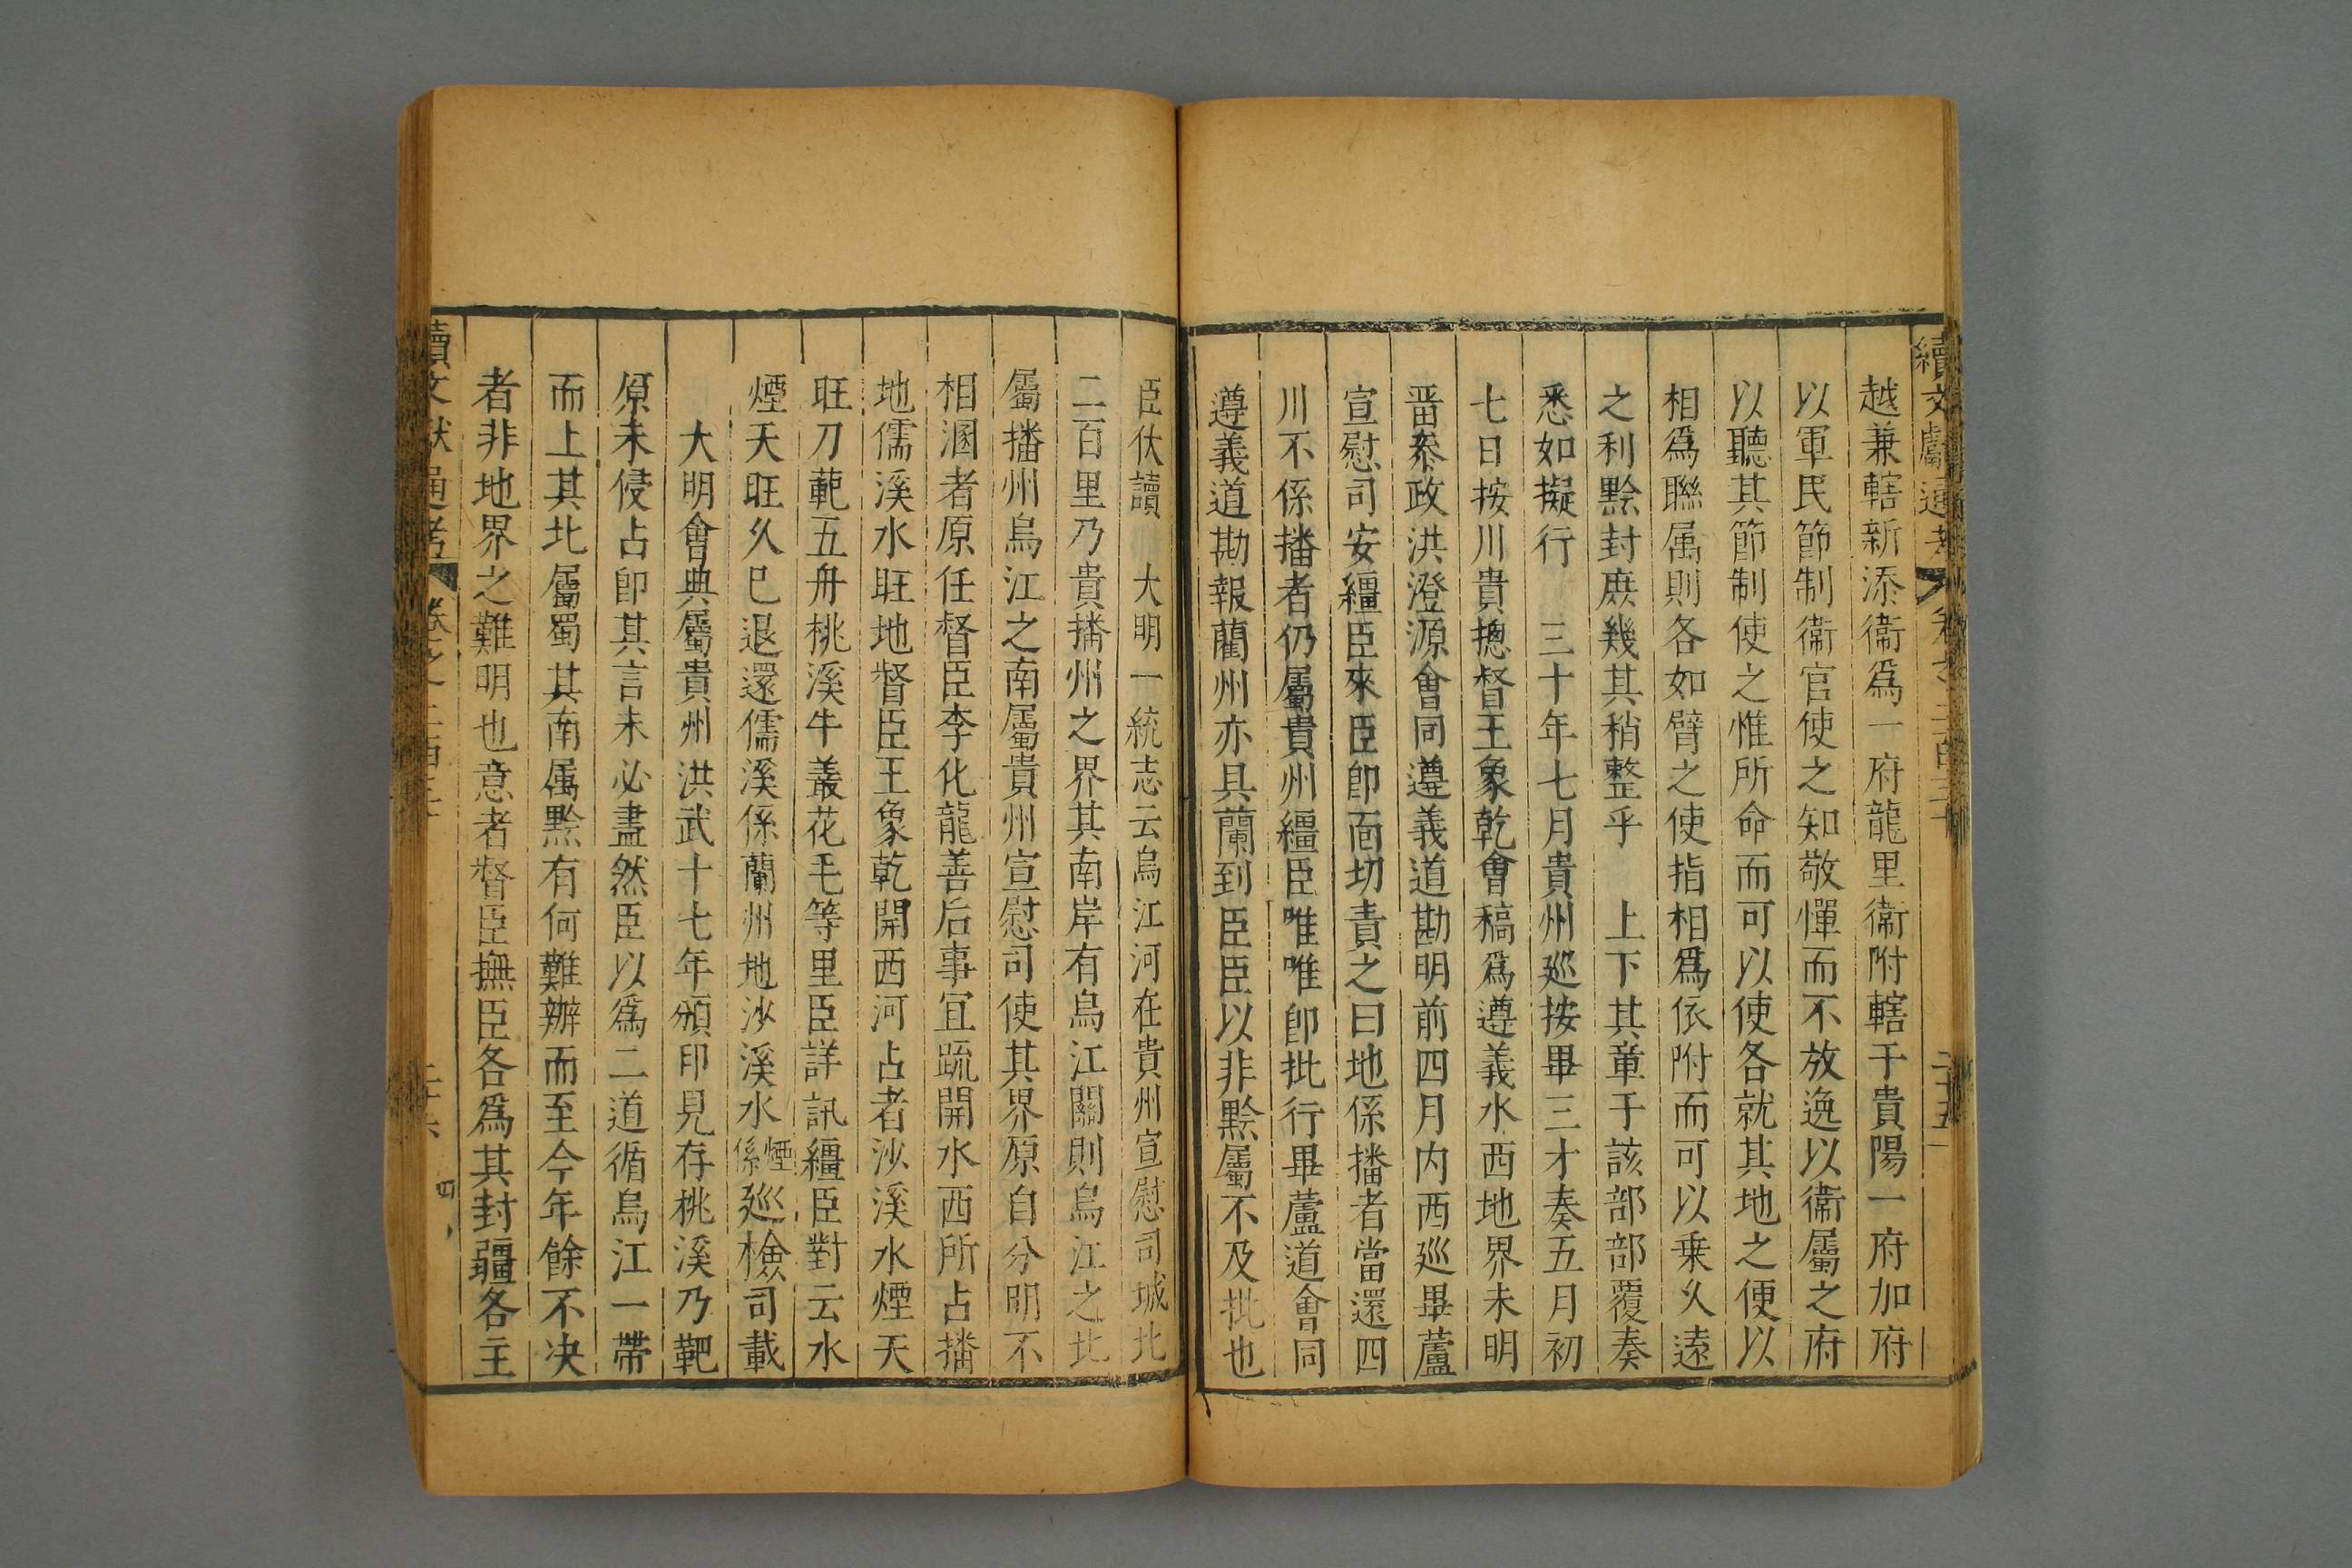 越兼轄新添衞爲一府龍里衞附轄于貴陽一府加府
以軍民節制衞官使之知敬憚而不放逸以衞屬之府
以聽其節制使之惟所命而可以使各就其地之便以
相爲聯属則各如臂之使指相爲依附而可以乗久遠
之利黔封庶幾其稍整乎　上下其章于該部部覆奏
悉如擬行　三十年七月貴州廵按畢三才奏五月初
七日按川貴摠督王象乾會稿爲遵義水西地界未明
畨叅政洪澄源會同遵義道勘明前四月内西廵畢蘆
宣慰司安繮臣來臣卽面切責之曰地係播者當還四
川不係播者仍屬貴州繮臣唯唯卽批行畢蘆道會同
遵義道勘報藺州亦具蘭到臣臣以非黔屬不及批也
臣伏讀　大明一統志云烏江河在貴州宣慰司城北
二百里乃貴播州之界其南岸有烏江關則烏江之北
屬播州烏江之南屬貴州宣慰司使其界原自分明不
相溷者原任督臣李化龍善后事宜䟽開水西所占播
地儒溪水旺地督臣王象乾開西河占者沙溪水煙天
旺刀䩗五舟桃溪牛叢花毛等里臣詳訊繮臣對云水
煙天旺久已退還儒溪係蘭州地沙溪水係煙廵檢司載
大明會典屬貴州洪武十七年頒印見存桃溪乃䩗
原未侵占卽其言未必盡然臣以爲二道循烏江一帶
而上其北屬蜀其南属黔有何難辦而至今年餘不决
者非地界之難明也意者督臣撫臣各爲其封疆各主